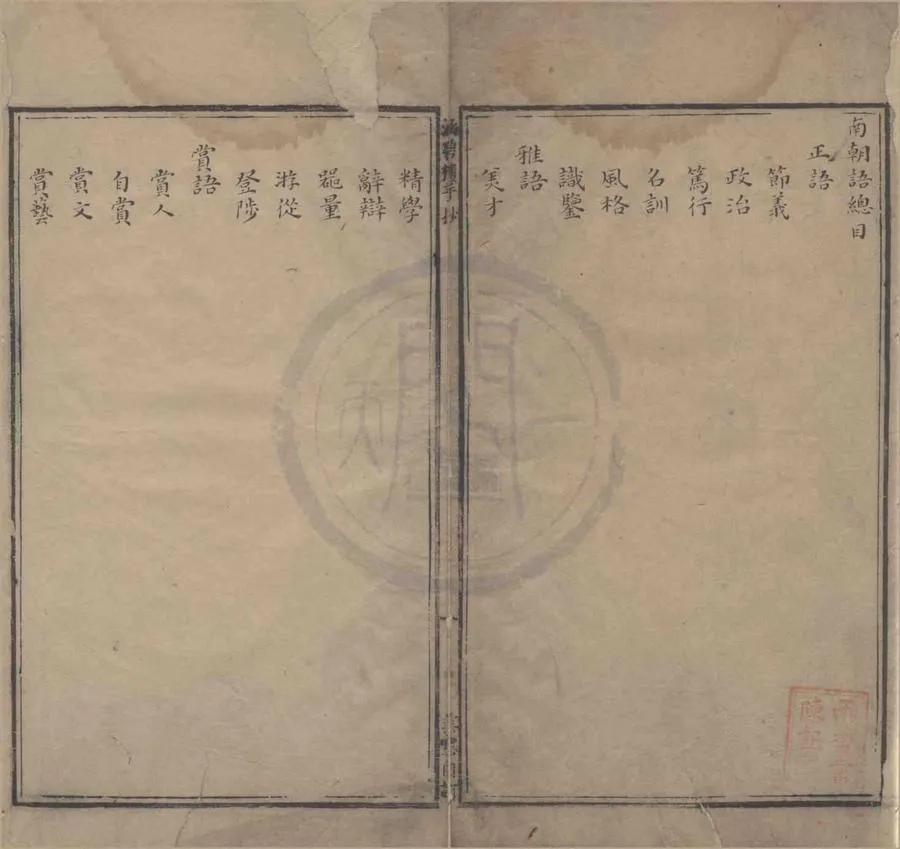 南朝語總目
正語
節義
政治
篤行
名訓
風格
識鑒
雅語
儁才
精學
辭辯
噐量
游從
登陟
賞語
賞人
自賞
賞文
賞藝